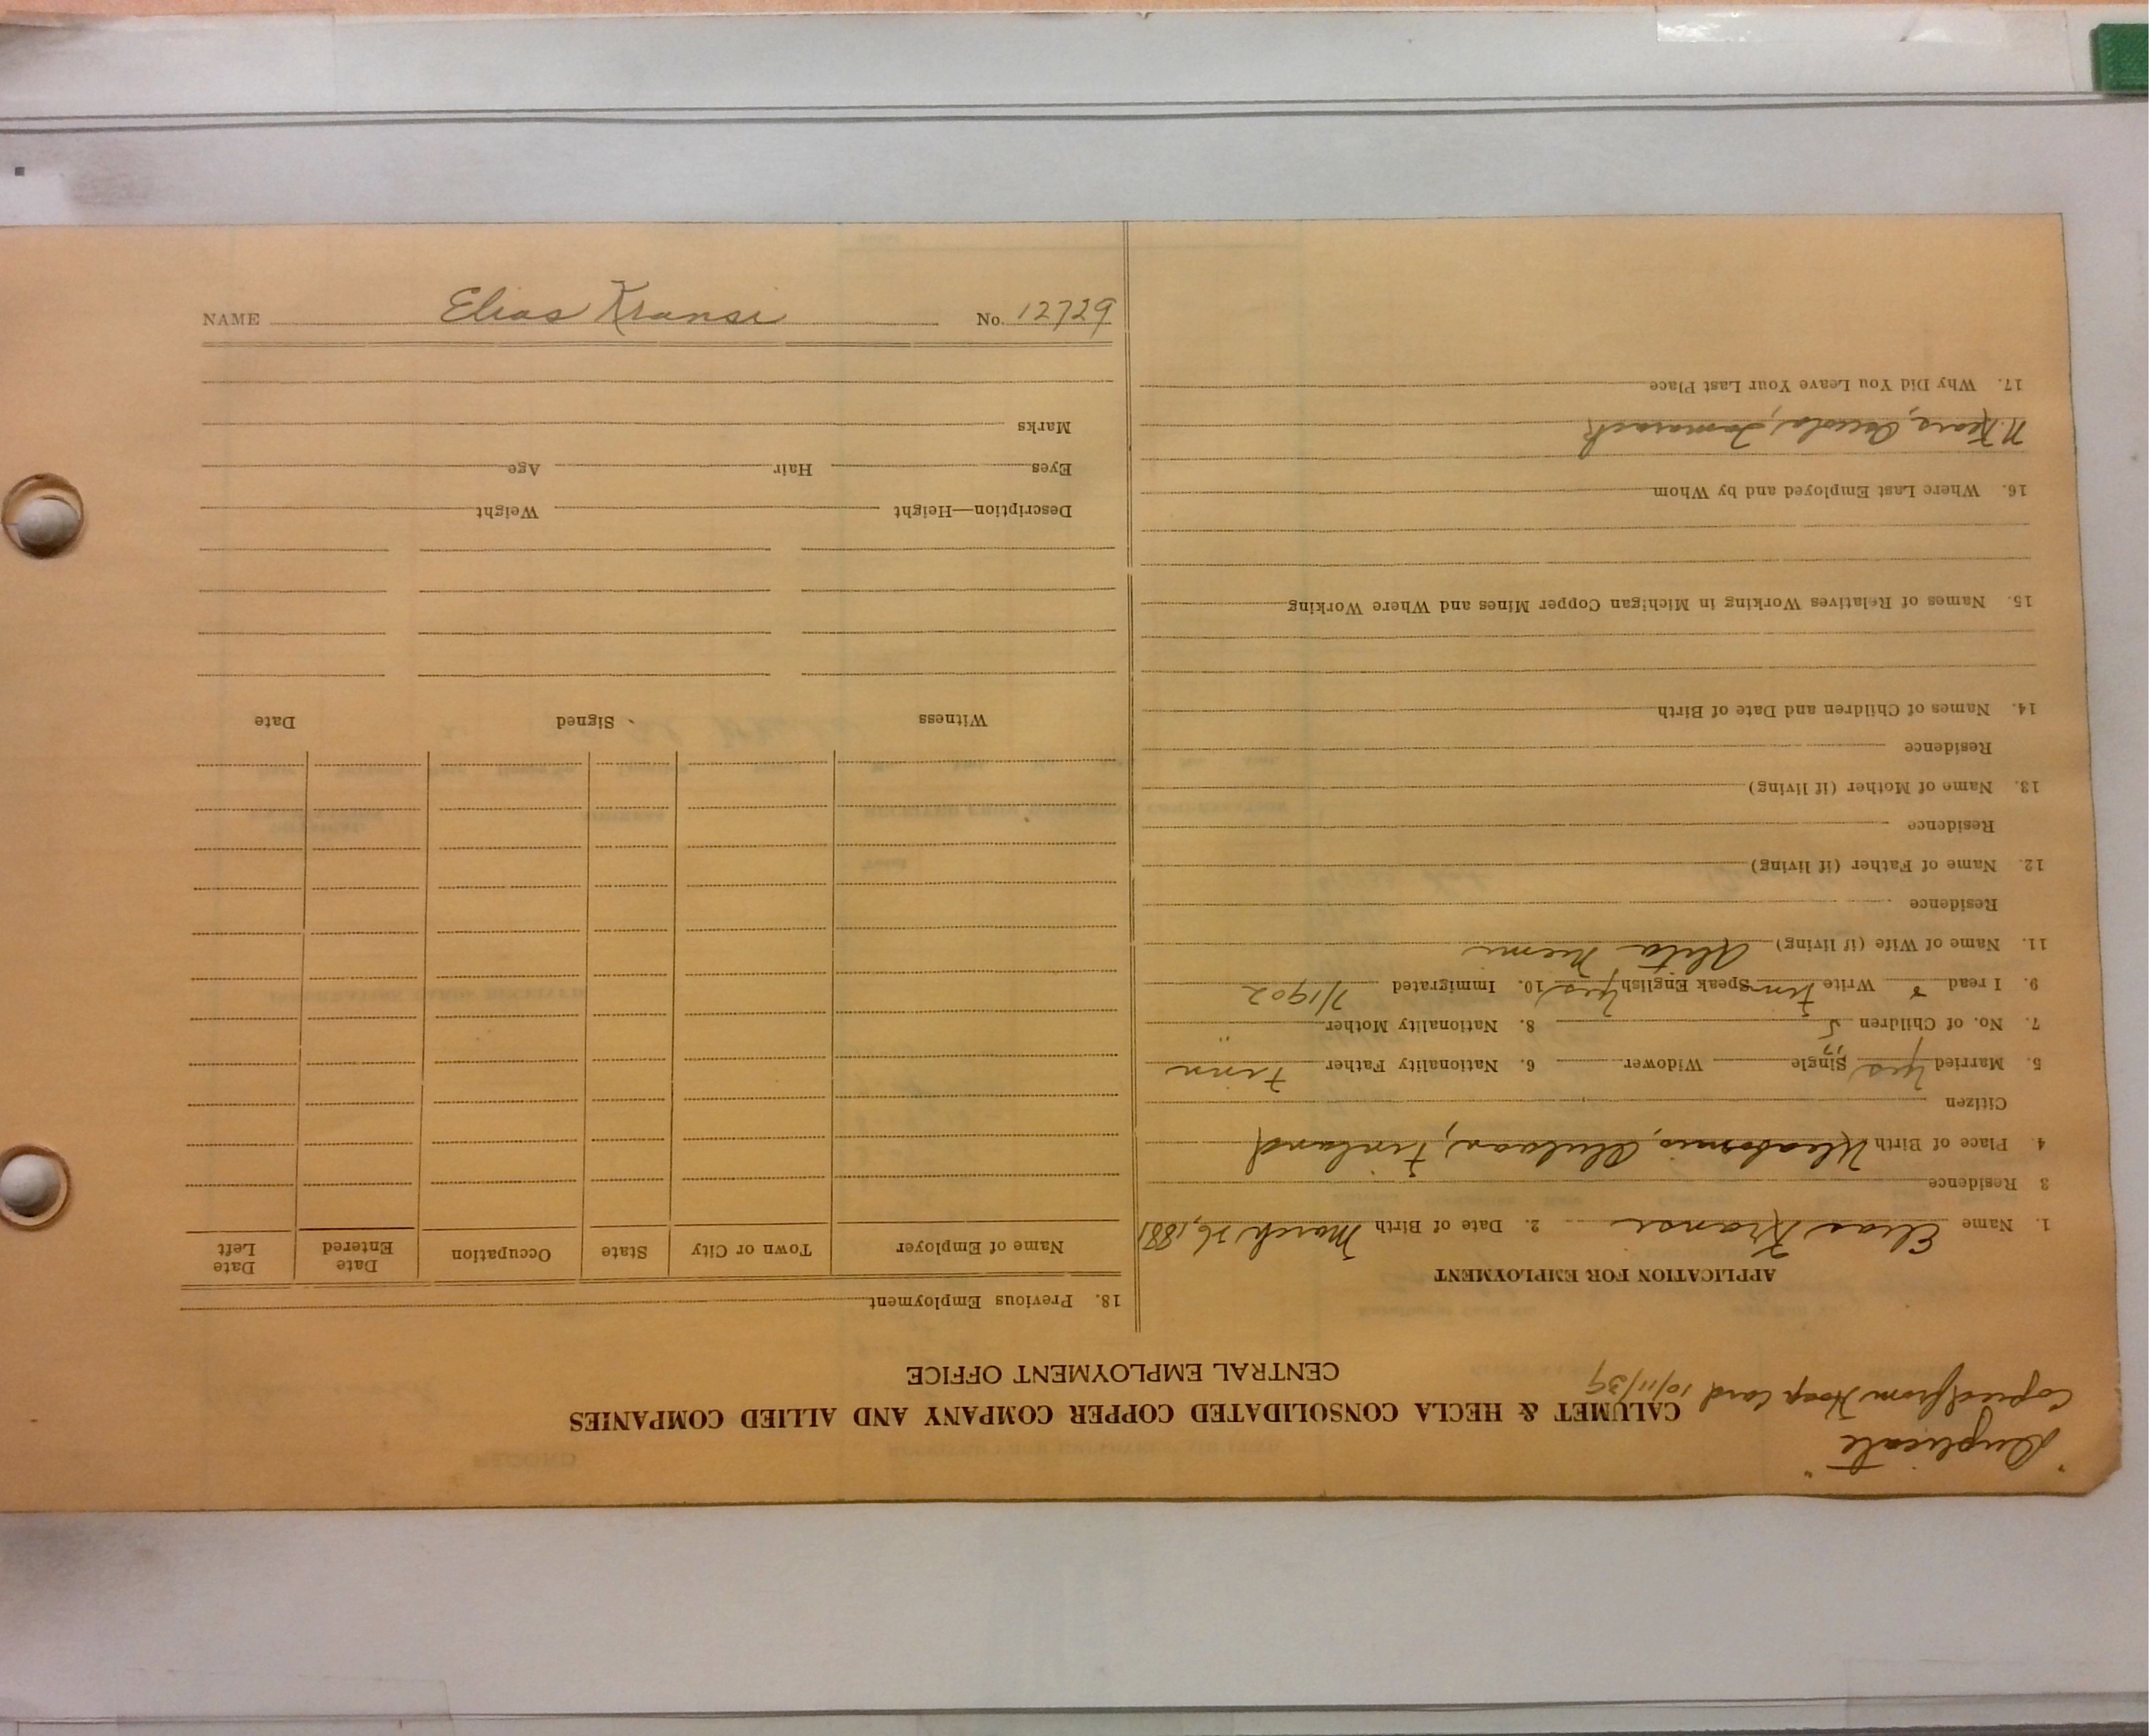 "Duplicate"
Copied from Hosp Card 10/11/39
CALUMET & HECLA CONSOLIDATED COPPER COMPANY AND ALLIED COMPANIES
CENTRAL EMPLOYMENT OFFICE
APPLICATION FOR EMPLOYMENT
1. Name Elias Kransi 2. Date of Birth March 26, 1881
3 Residence
4. Place of Birth Finland
Citizen
5. Married Yes Single Widower 6. Nationality Father Finn
7. No. of Children 5 8. Nationality Mother "
9. I read & Write Finn Speak English Yes 10. Immigrated 7/1902
11. Name of Wife (if living) Niemi
Residence
12. Name of Father (if living)
Residence
13. Name of Mother (if living)
Residence
14. Names of Children and Date of Birth
15. Names of Relatives Working in Michigan Copper Mines and Where Working
16. Where Last Employed and by Whom
N. Kears, Osceola, Tamarack
17. Why Did You Leave Your Last Place
18. Previous Employment
Name of Employer Town or City State Occupation Date Entered Date Left
Witness Signed Date
Description—Height Weight
Eyes Hair Age
Marks
NAME Elias Kransi No. 12729